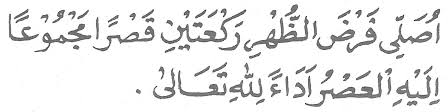 اُصَلِّى فَرْضَ الظُّهْرِ رَكْعَتَيْنِ قَصْرًا مَجْمُوْعًا
اِلَيْهِ الْعَصْرُ اَدَاءً لِلّٰهِ تَعَالٰى .